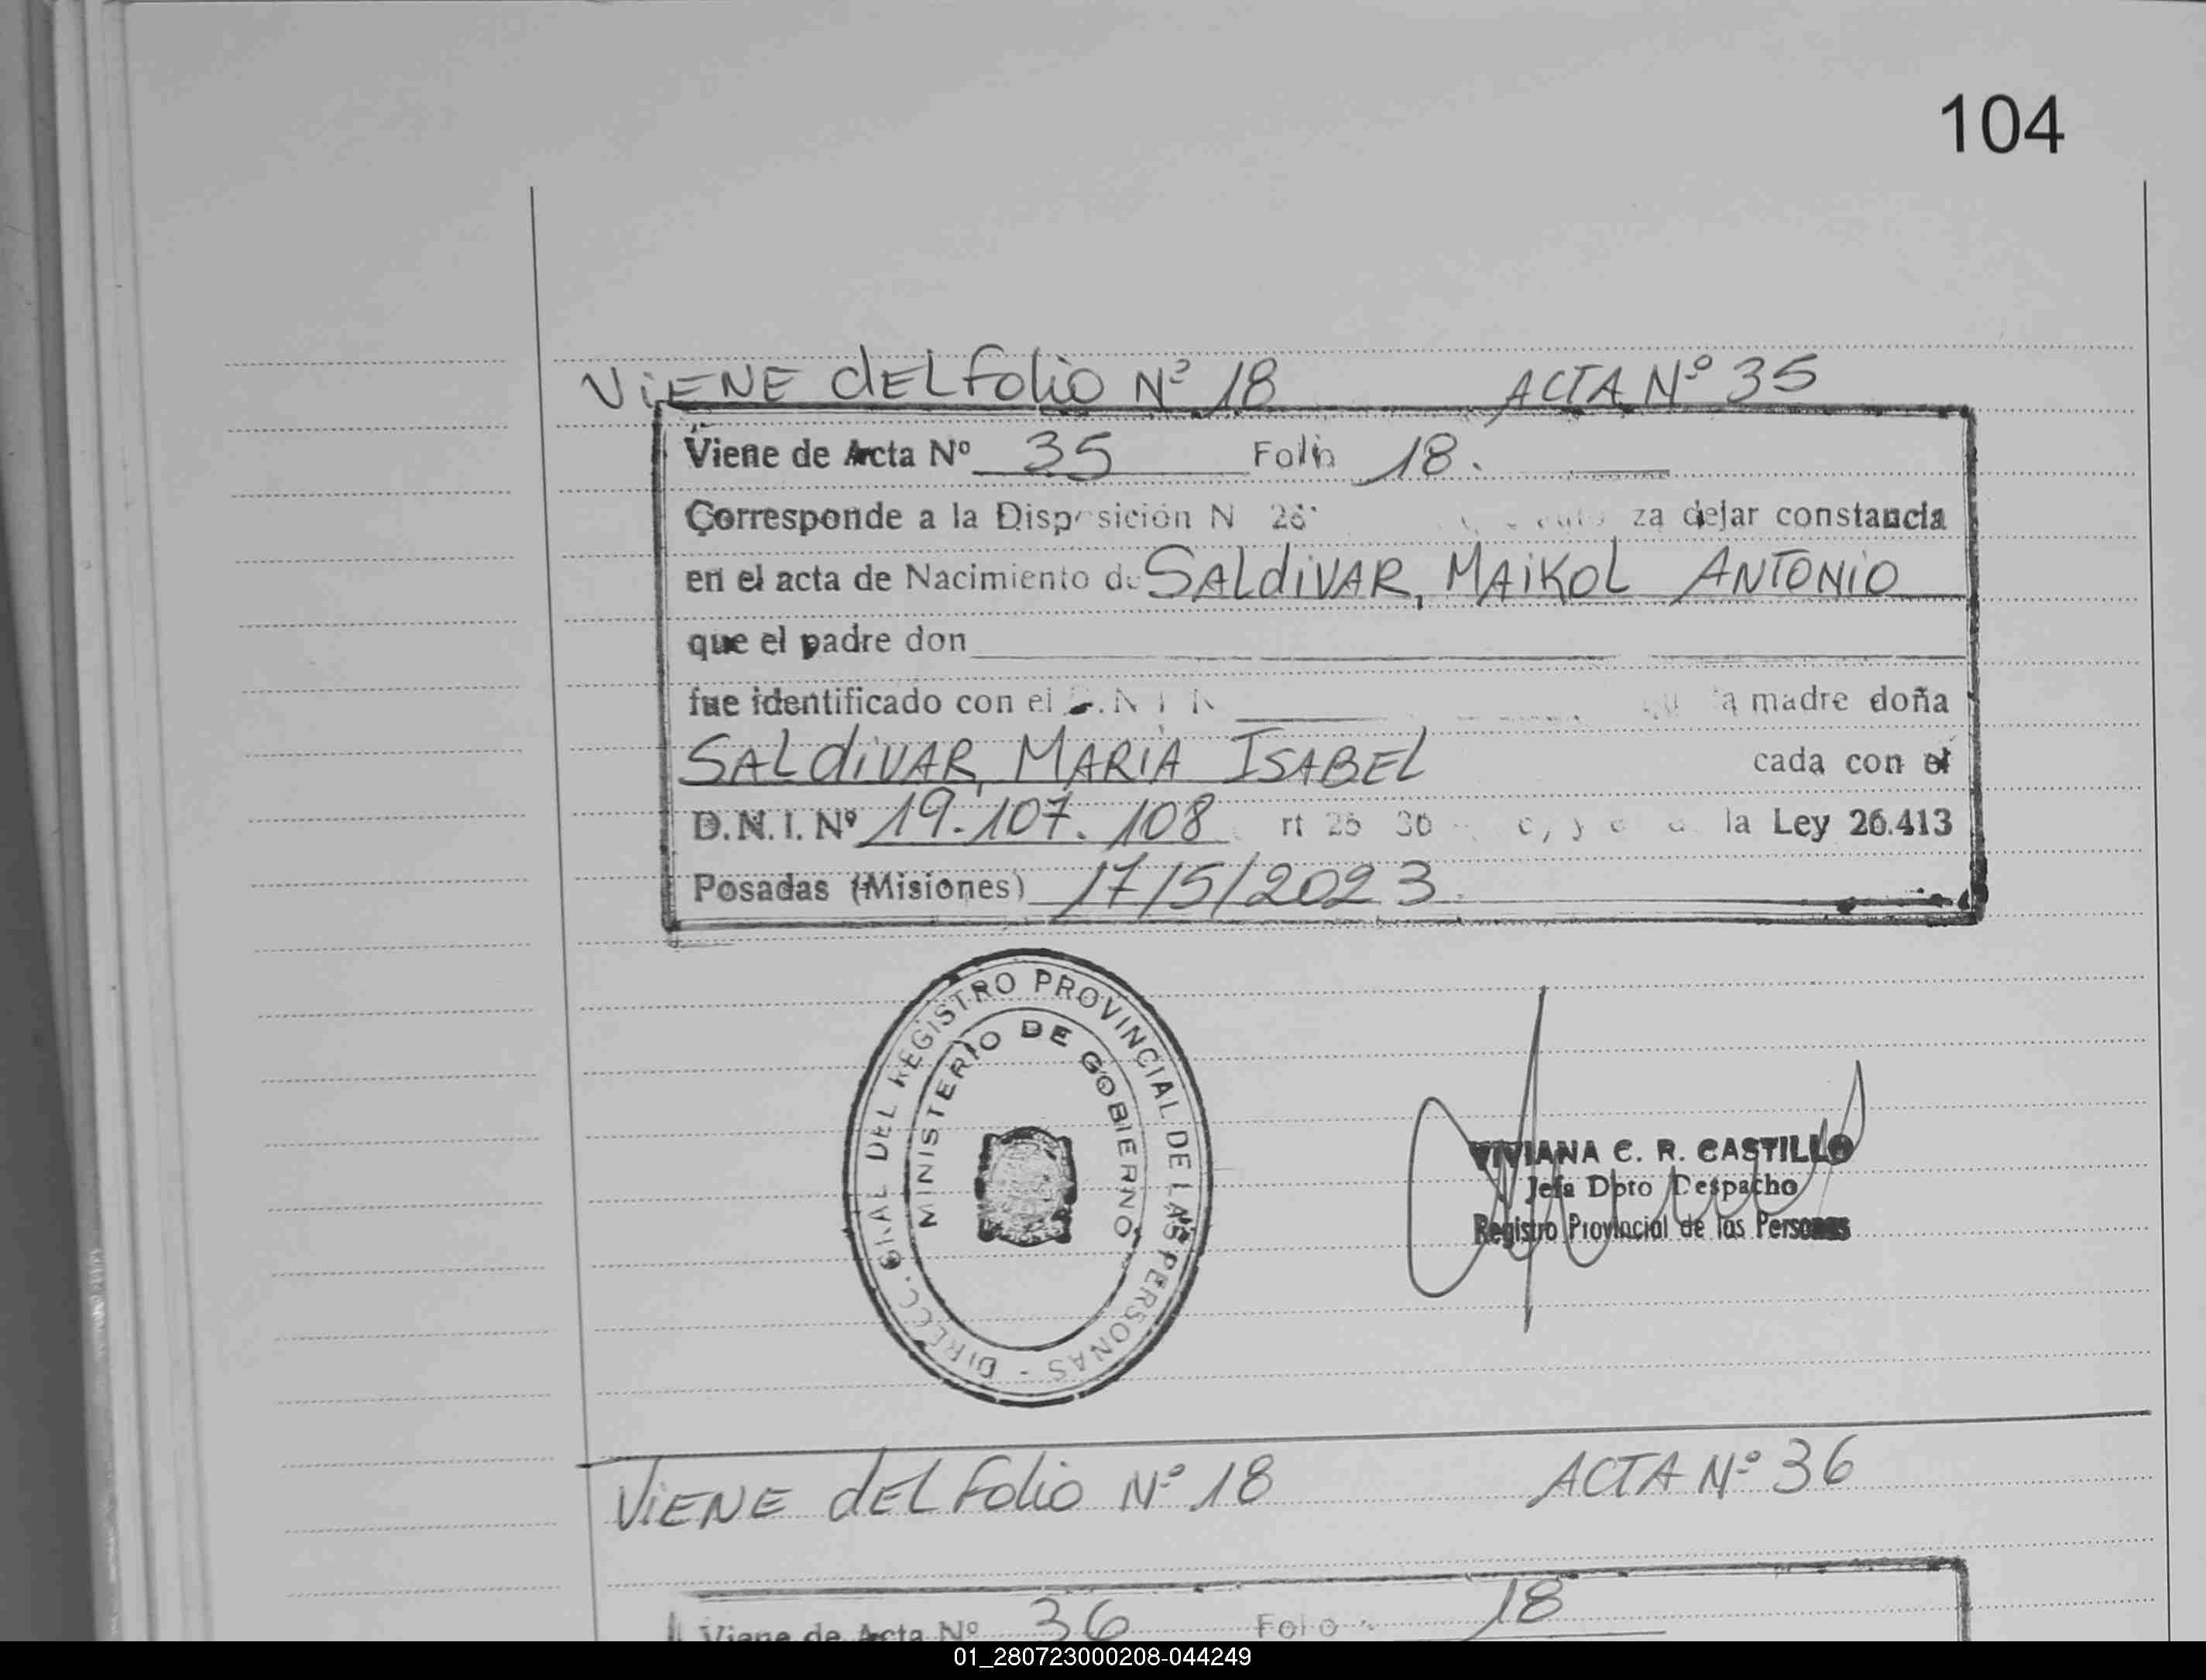 104
VIENE dEL Folio Nº 18 ACTA Nº 35
Viene de Acta Nº 35 Folio 18.
Corresponde a la Disposición N 26 za dejar constancia
en el acta de Nacimiento de SALdiVAR, MAiKOL ANTONiO
que el padre don
fue identificado con el D.N.I. N a madre doña
SALdiVAR, MARiA ISABEL cada con el
D.N.I. Nº 19.107.108 rt 25 36 c, y la Ley 26.413
Posadas (Misiones) 17/5/2023.
DIRECC. GRAL DEL REGISTRO PROVINCIAL DE LAS PERSONAS -
MINISTERIO DE GOBIERNO
VIVIANA C. R. CASTILLO
Jefa Dpto Despacho
Registro Provincial de las Personas
ViENE dEL Folio Nº 18 ACTA Nº 36
Viene de Acta Nº 36 Folio 18
01_280723000208-044249